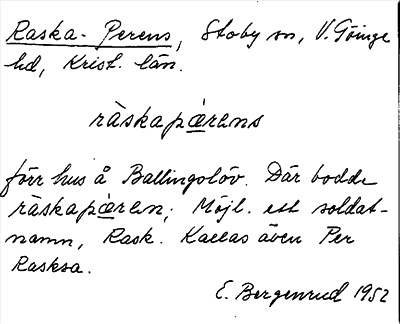 Raska-Perens, Stoby sn, V. Göinge
hd, Krist. län.
ràskapæ̀rens
förr hus å Ballingslöv. Där bodde
ràskapæ̀ren; Möjl. ett soldat-
namn, Rask. Kallas även Per
Rasksa.
E. Bergenrud 1952